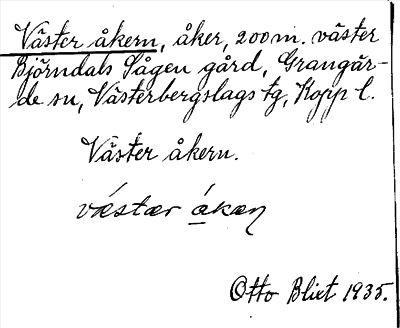 Väster åkern, åker, 200 m. väster
Björndals Sågen gård, Grangär-
de sn, Västerbergslags tg, Kopp l.
Väster åkern.
Otto Blixt 1935.